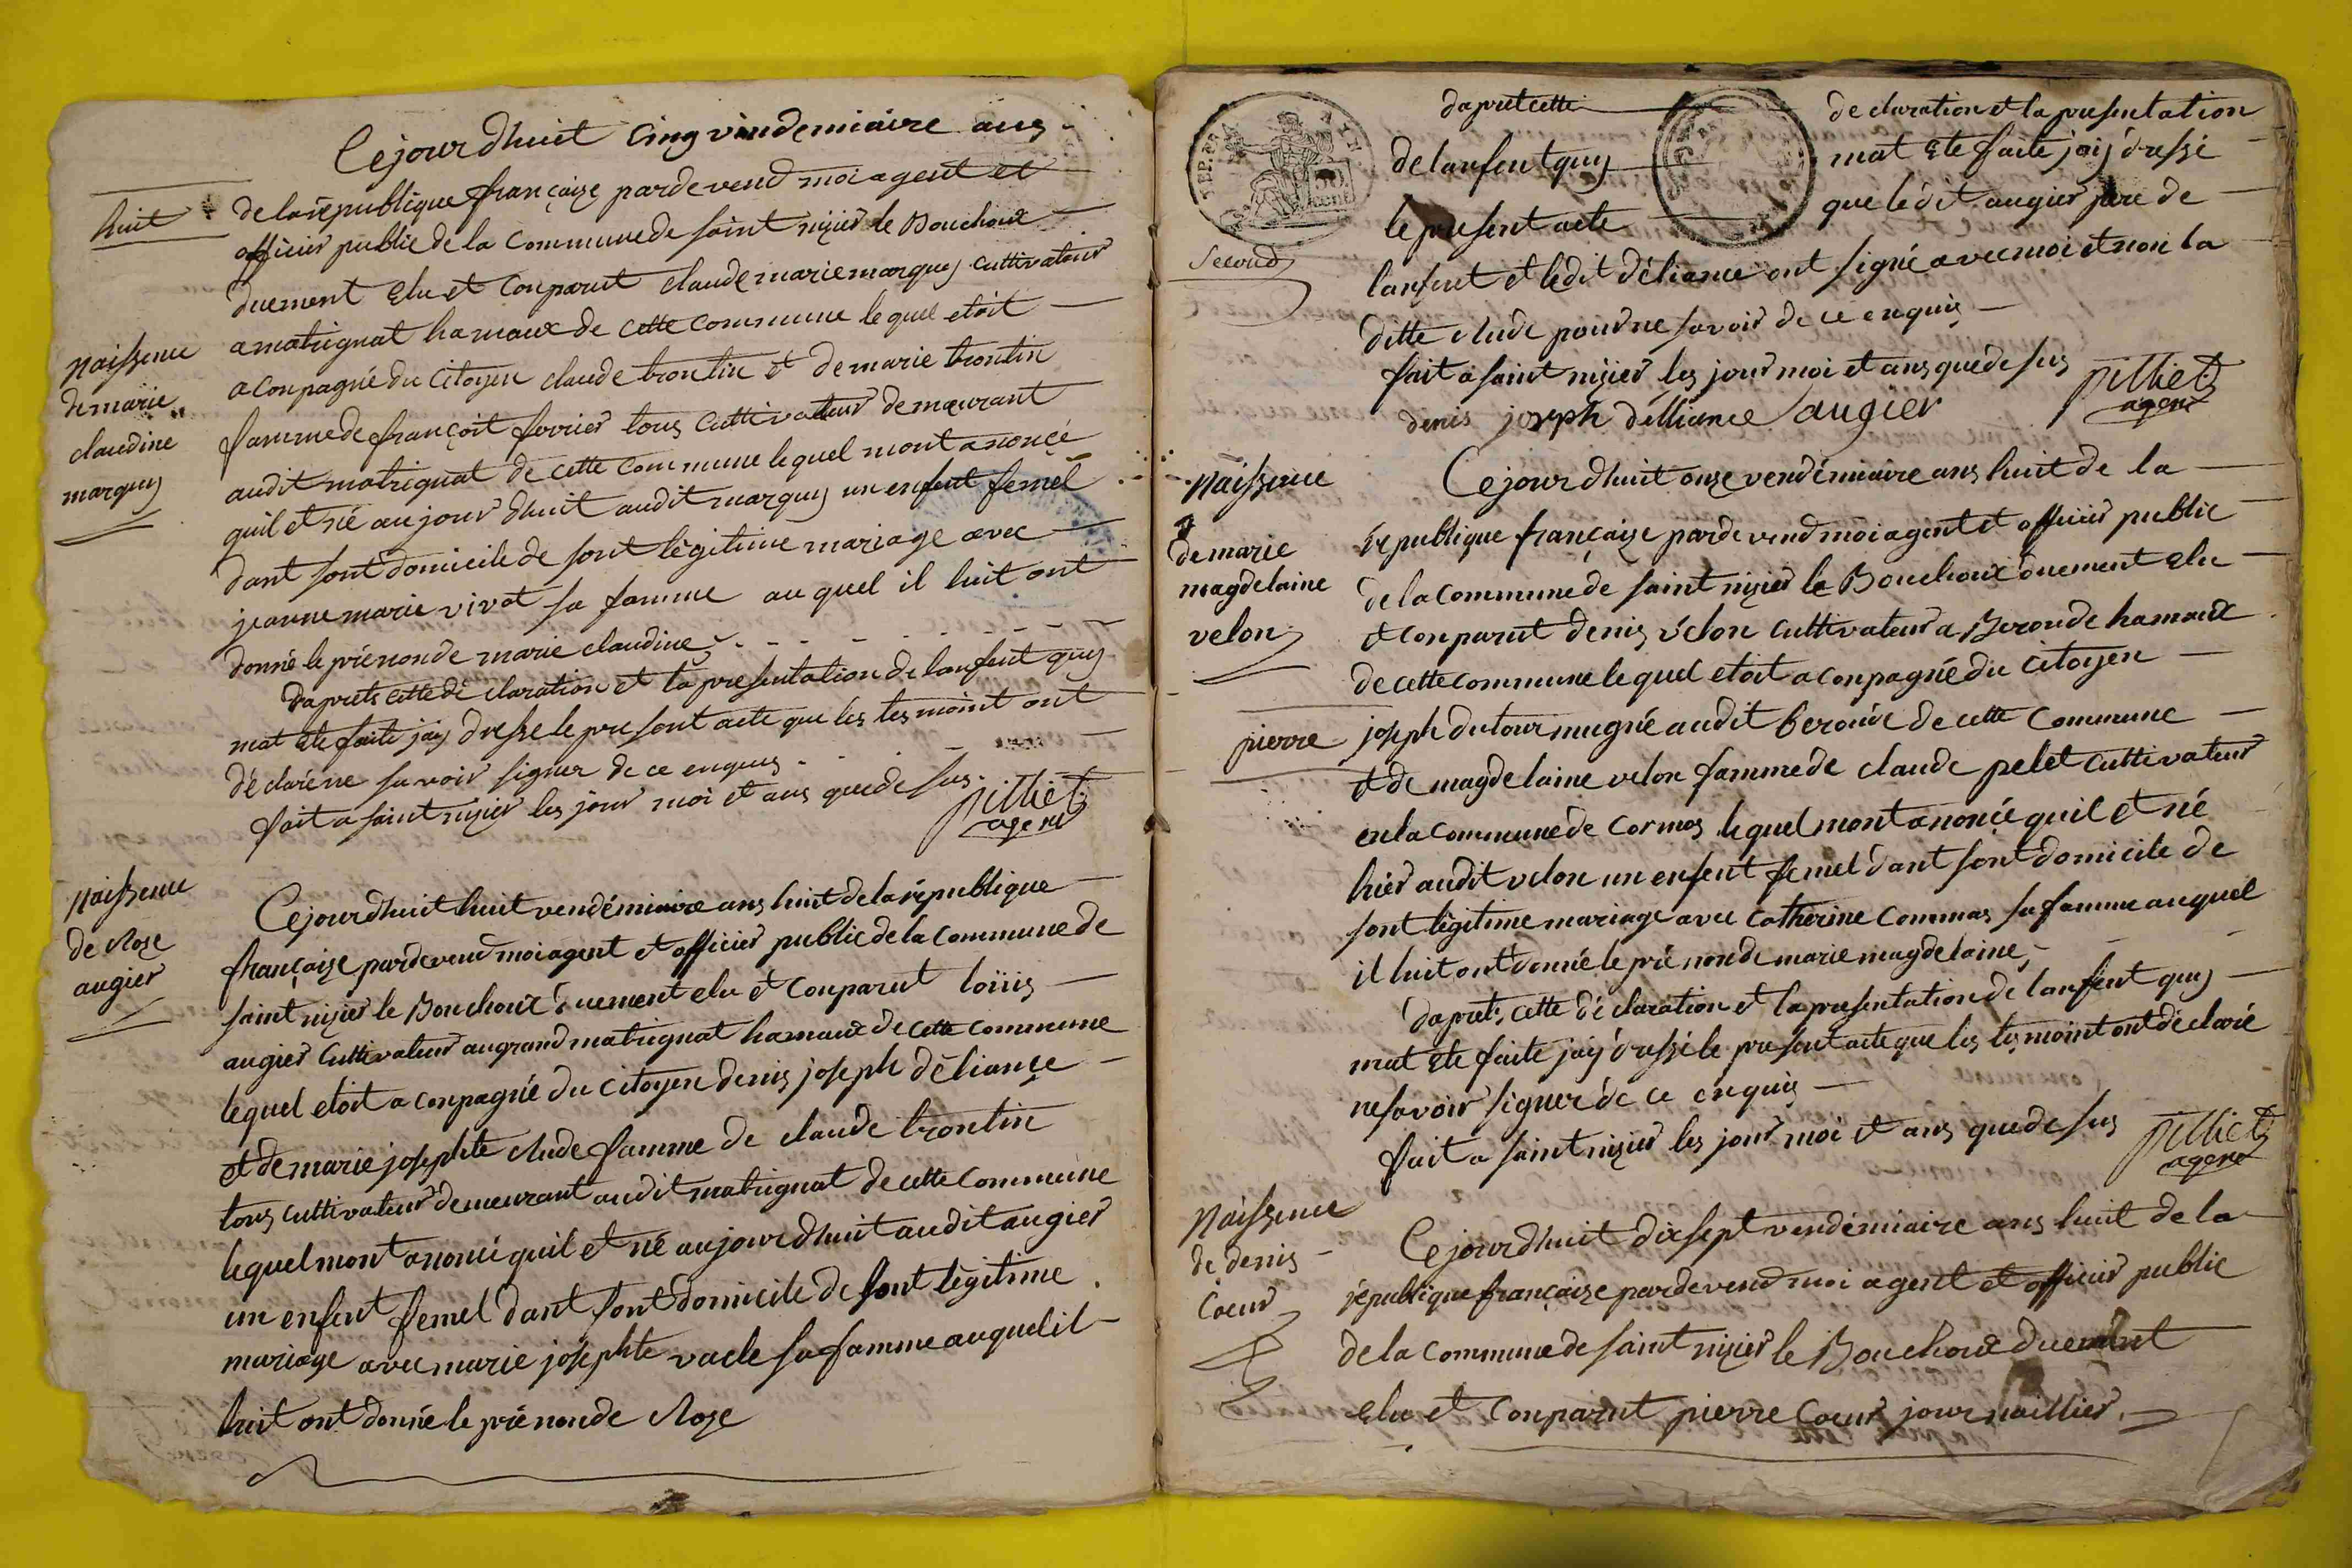 Cejourdhuit cinq vindemiaire ans
huit
delarepublique françaize pardevend moi agent et
officier public de la Commune de saint nizier le Bouchoux
duement Elu et Conparut claude marie marquis cultivateur
a matrignat hamaux de cette commune le quel etoit
aconpagné du Citoyen claude trontin et de marie trontin
famme de françoit fevrier tous cultivateur demeurant
audit matrignat de cette commune lequel mont anoncé
quil et né aujour dhuit audit marquis un enfent femel
dant sont domicile de sont legitime mariage avec
jeanne marie vivat sa famme au quel il luit ont
donné le prénon de marie claudine
Naissence
de marie
claudine
marquis
daprets cette déclaration et la presentation de lanfent quy
mat Ete faite jaij dresse le present acte que les tesmoint ont
déclaré ne savoir signer de ce enquis
fait a saint nizier les jour moi et ans que de sus
pilliet
agent
Naissence
de Roze
augier
Cejourdhuit huit vendémiaire ans huit de la république
françaize pardevend moi agent et officier public de la Commune de
saint nizier le Bouchoux duement elu et Conparut loüis
augier Cultivateur au grand matrignat hamaux de cette commune
lequel etoit aconpagné du Citoyen denis joseph déliance
et de marie josephte clude famme de claude trontin
tous cultivateur demeurant audit matrignat de cette commune
lequel mont anoncé quil et né aujourdhuit audit augier
un enfent femel dant sont domicile de sont légitime
mariage avec marie josephte vacle sa famme auquel il
luit ont donné le prénon de Roze
TIMP. EXT.
daprets cette declaration et la presentation
de lanfent quy mat Ete faite jaij dressé
le present acte que lédit augier pere de
second
lanfent et ledit déliance ont signé avec moi et non la
ditte clude pour ne savoir de ce enquis
fait a saint nizier les jour moi et ans que de sus
denis joseph delliance augier
pilliet
agent
Naissence
de marie
magdelaine
velon
Cejourdhuit onze vendémiaire ans huit de la
republique françaize pardevend moi agent et officier public
de la Commune de saint nizier le Bouchoux duement Elu
et Conparut denis vélon cultivateur a Beronde hamaux
de cette commune le quel etoit aconpagné du Citoyen
pierre
joseph dutour mugnié audit berondé de cette Commune
et de magdelaine velon famme de claude pelet cultivateur
en la Commune de Cormos lequel mont anoncé quil et né
hier audit velon un enfent femel dant sont domicile de
sont légitime mariage avec Catherine Commas sa famme auquel
il luit ont donné le prénon de marie magdelaine
daprets cette déclaration et la presentation de lanfent quy
mat Ete faite jaij dressé le present acte que les tesmoint ont déclaré
ne savoir signer de ce enquis
fait a saint nizier les jour moi et ans que de sus
pilliet
agent
Naissence
de denis
Coeur
Cejourdhuit dixsept vendémiaire ans huit de la
republique françaize pardevend moi agent et officier public
de la Commune de saint nizier le Bouchoux duement
Elu et Conparut pierre Coeur journaillier